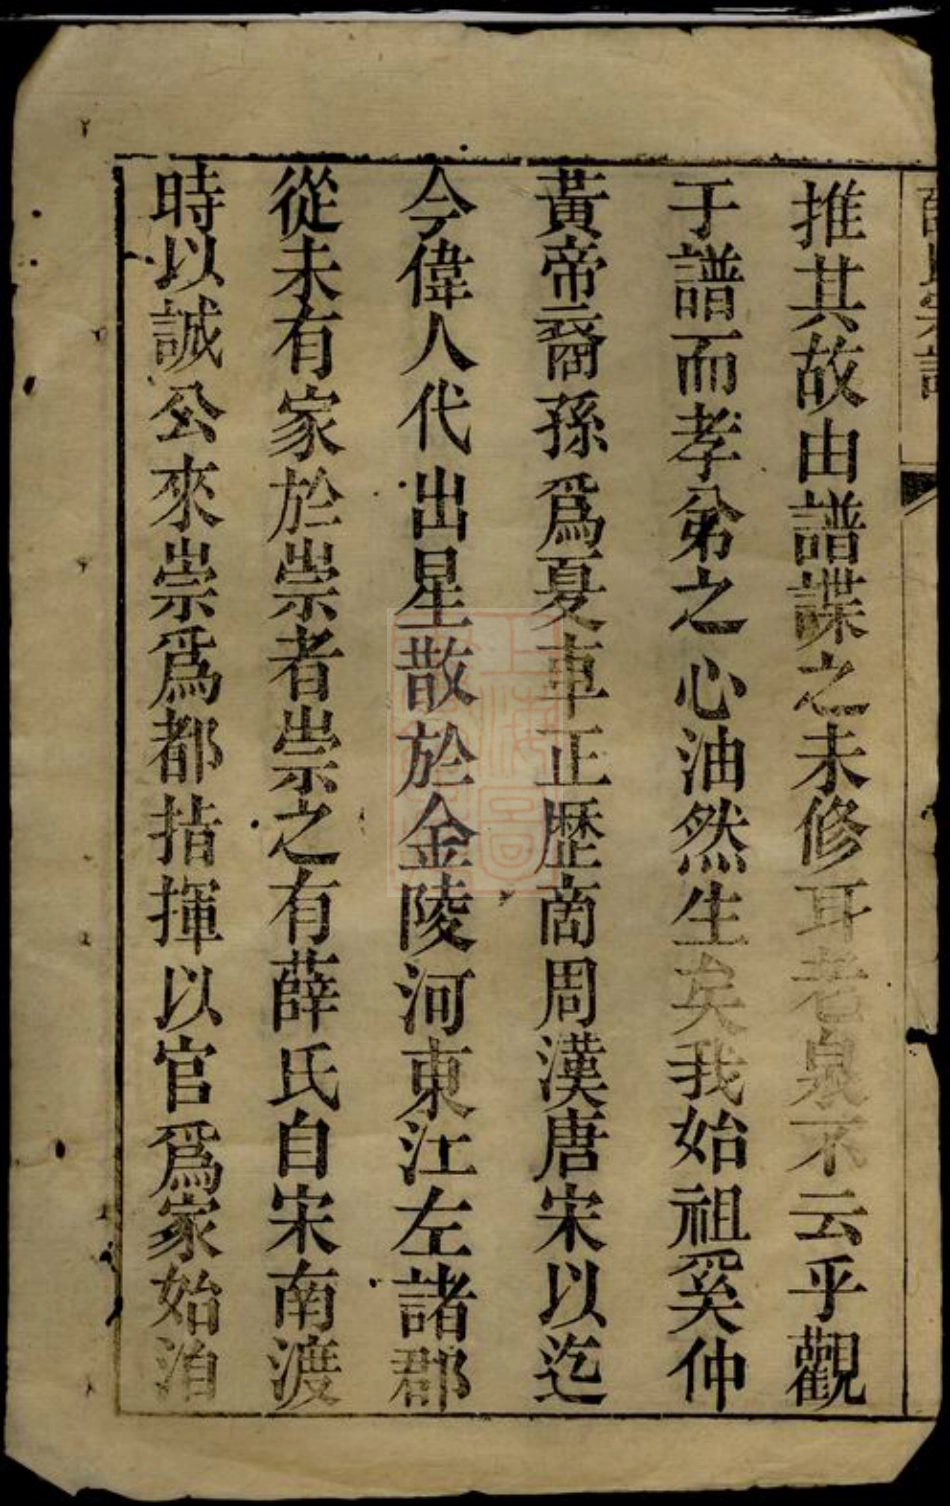 薛氏宗譜
推其故由譜諜之未修耳老泉不云乎觀
于譜而孝弟之心油然生矣我始祖奚仲
黃帝裔孫爲夏車正歷商周漢唐宋以迄
今偉人代出星散於金陵河東江左諸郡
從未有家於崇者崇之有薛氏自宋南渡
時以誠公來崇爲都指揮以官爲家始洎